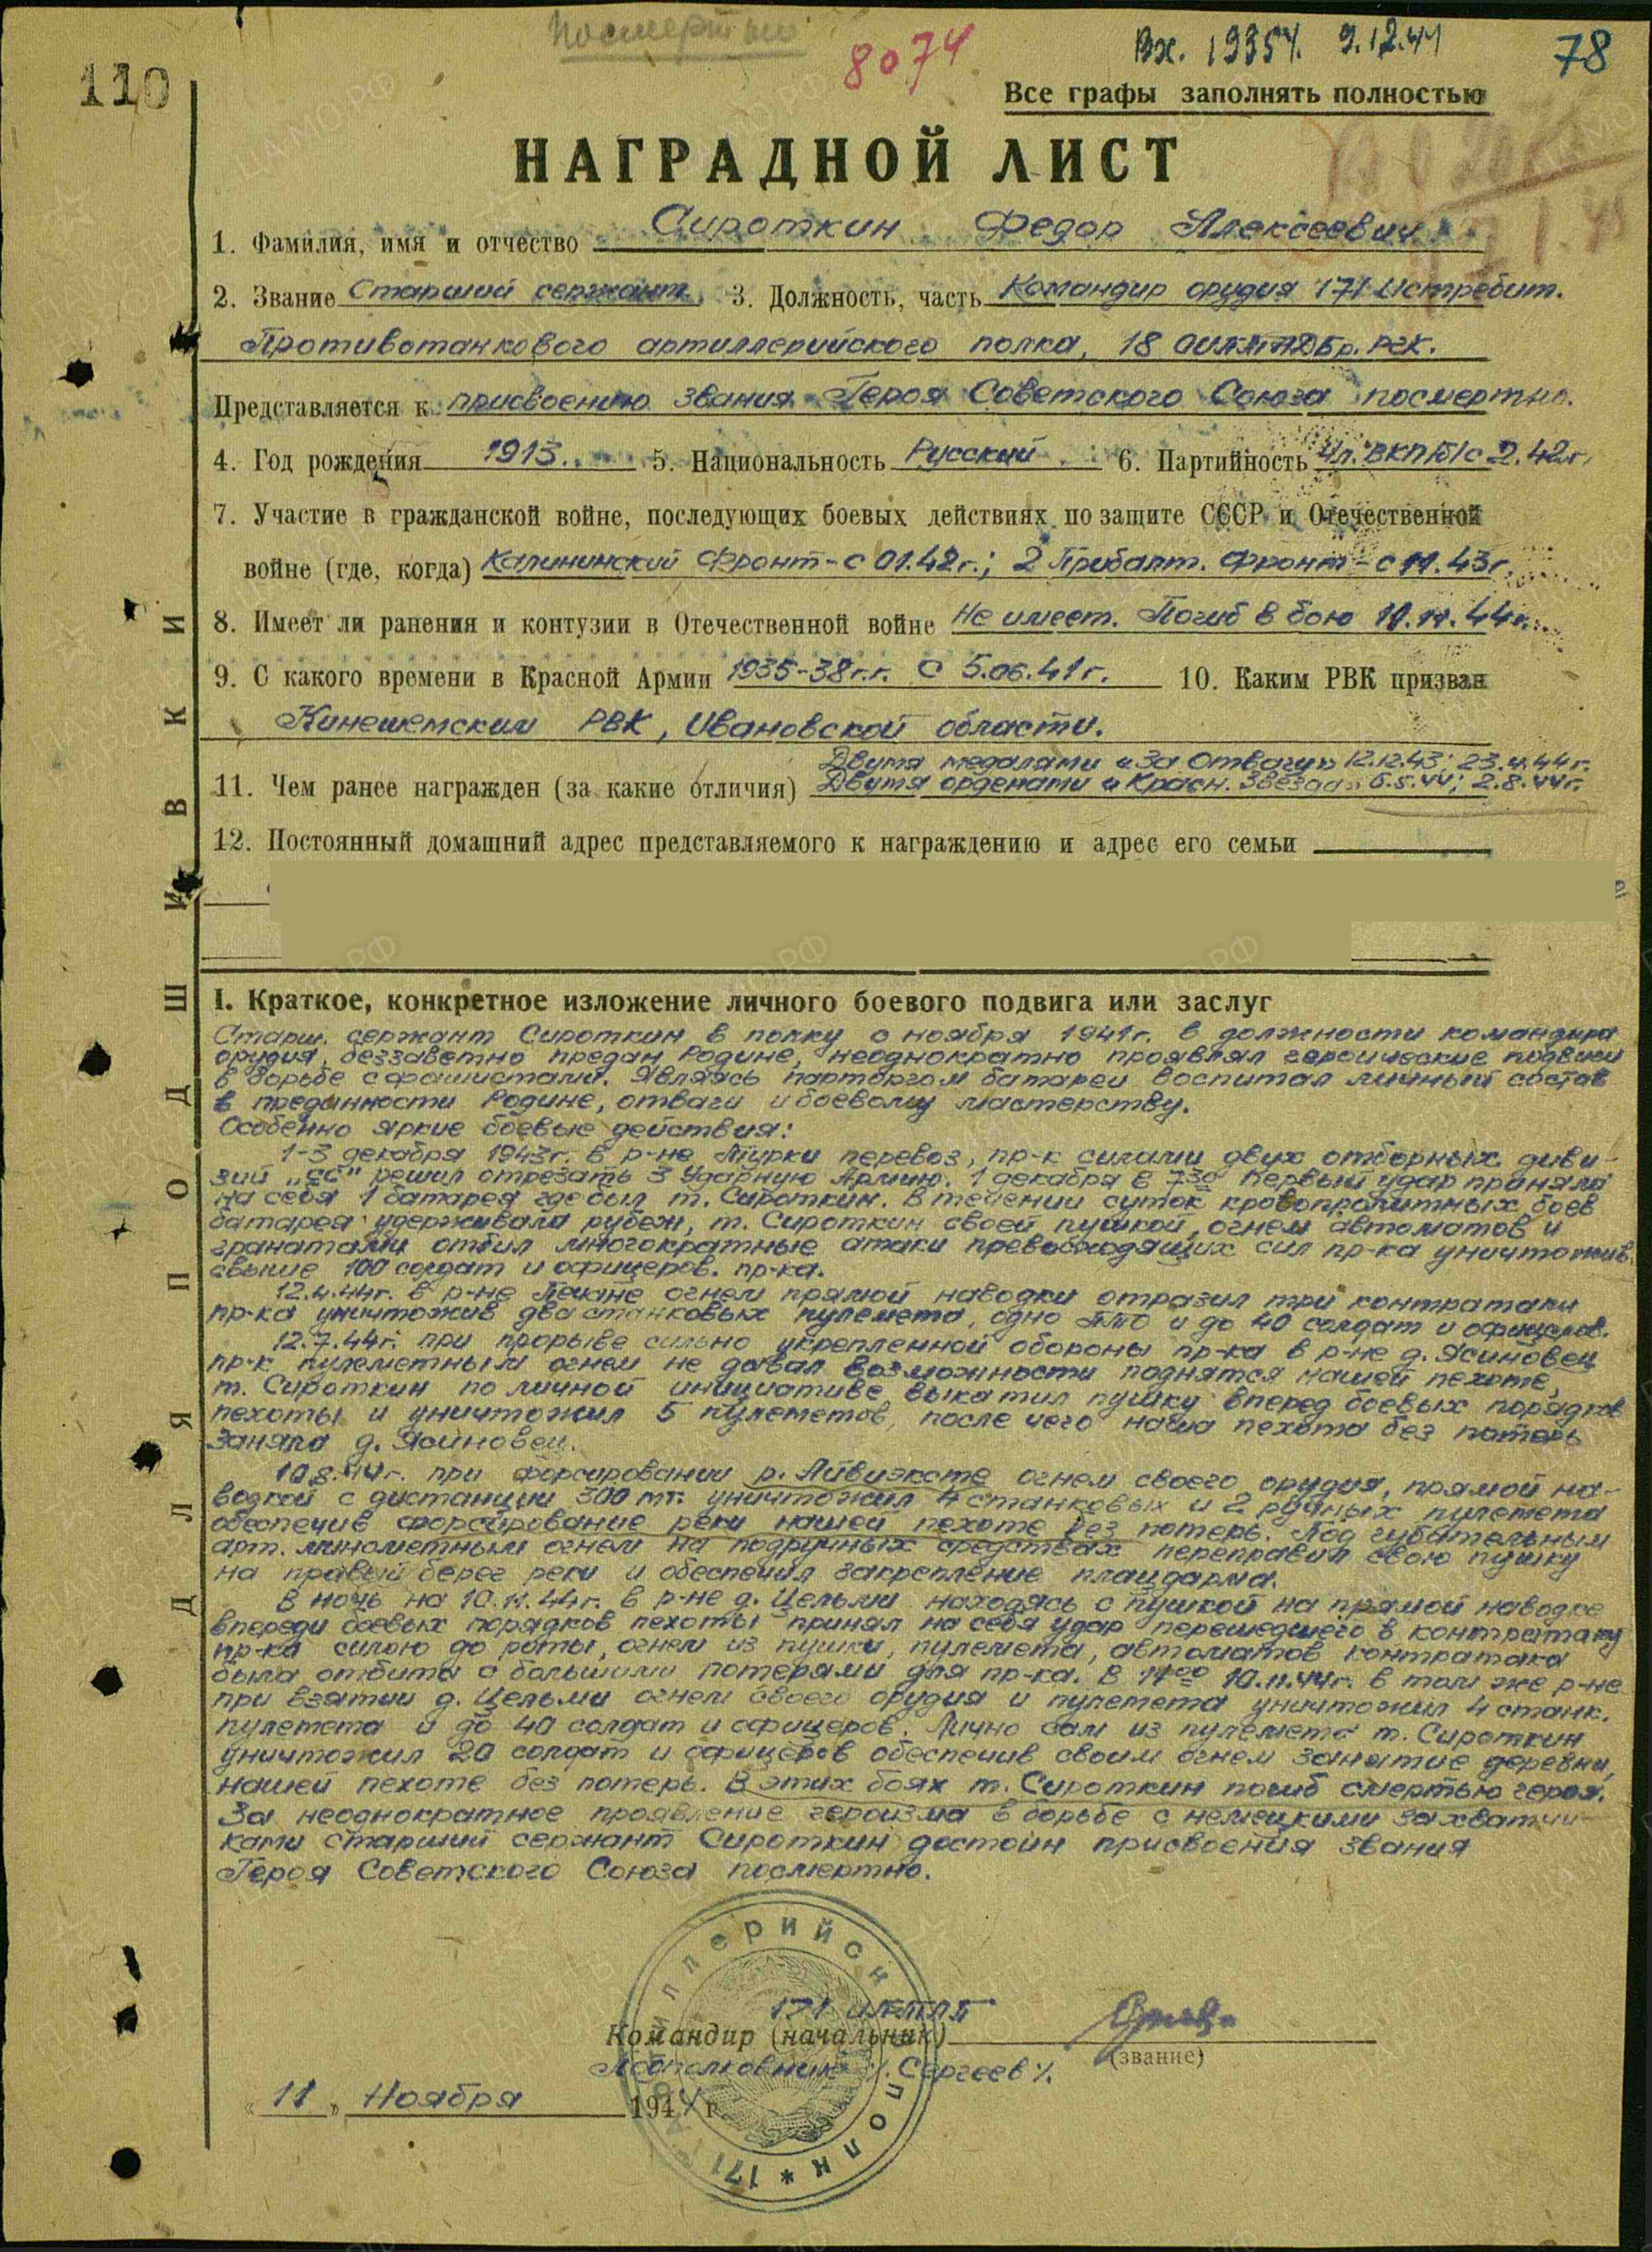 Посмертно
8074
Вх. 19354. 9.12.44
78
110
Все графы заполнять полностью
НАГРАДНОЙ ЛИСТ
1. Фамилия, имя и отчество Сироткин Федор Алексеевич
2. Звание Старший сержант 3. Должность, часть Командир орудия 171 Истребит.
Противотанкового артиллерийского полка, 18 ОИПТАБр. РГК.
Представляется к присвоению звания Героя Советского Союза посмертно.
4. Год рождения 1913. 5. Национальность Русский 6. Партийность Чл. ВКП/б/ с 2.42г.
7. Участие в гражданской войне, последующих боевых действиях по защите СССР и Отечественной
войне (где, когда) Калининский Фронт - с 01.42г.; 2 Прибалт. Фронт - с 11.43г.
8. Имеет ли ранения и контузии в Отечественной войне Не имеет. Погиб в бою 10.11.44г.
9. С какого времени в Красной Армии 1935-38г.г. С 5.06.41г. 10. Каким РВК призван
Кинешемским РВК, Ивановской области.
Двумя медалями «За Отвагу» 12.12.43; 23.4.44г.
11. Чем ранее награжден (за какие отличия) Двумя орденами «Красн. Звезда» 6.5.44; 2.8.44г.
12. Постоянный домашний адрес представляемого к награждению и адрес его семьи
ДЛЯ ПОДШИВКИ
I. Краткое, конкретное изложение личного боевого подвига или заслуг
Старш. сержант Сироткин в полку с ноября 1941г. в должности командира
орудия, беззаветно предан Родине, неоднократно проявлял героические подвиги
в борьбе с фашистами. Являясь парторгом батареи воспитал личный состав
в преданности Родине, отваги и боевому мастерству.
Особенно яркие боевые действия:
1-3 декабря 1943г. в р-не Турки перевоз, пр-к силами двух отборных диви-
зий „СС" решил отрезать 3 Ударную Армию. 1 декабря в 7 30 первый удар приняла
на себя 1 батарея где был т. Сироткин. В течении суток кровопролитных боев
батарея удерживала рубеж, т. Сироткин своей пушкой, огнем автоматов и
гранатами отбил многократные атаки превосходящих сил пр-ка уничтожив
свыше 100 солдат и офицеров. пр-ка.
12.4.44г. в р-не Печане огнем прямой наводки отразил три контратаки
пр-ка уничтожив два станковых пулемета, одно ПТО и до 40 солдат и офицеров.
12.7.44г. при прорыве сильно укрепленной обороны пр-ка в р-не д. Ясиновец
пр-к пулеметным огнем не давал возможности поднятся нашей пехоте,
т. Сироткин по личной инициативе выкатил пушку вперед боевых порядков
пехоты и уничтожил 5 пулеметов, после чего наша пехота без потерь
заняла д. Ясиновец.
10.8.44г. при форсировании р. Айвиэксте огнем своего орудия, прямой на-
водкой с дистанции 300 мт. уничтожил 4 станковых и 2 ручных пулемета
обеспечив форсирование реки нашей пехоте без потерь. Под губительным
арт. минометным огнем на подручных средствах переправил свою пушку
на правый берег реки и обеспечил закрепление плацдарма.
В ночь на 10.11.44г. в р-не д. Цельми находясь с пушкой на прямой наводке
впереди боевых порядков пехоты принял на себя удар перешедшего в контратаку
пр-ка силою до роты, огнем из пушки, пулемета, автоматов контратака
была отбита с большими потерями для пр-ка. В 14 00 10.11.44г. в том же р-не
при взятии д. Цельми огнем своего орудия и пулемета уничтожил 4 станк.
пулемета и до 40 солдат и офицеров. Лично сам из пулемета т. Сироткин
уничтожил 20 солдат и офицеров обеспечив своим огнем занятие деревни,
нашей пехоте без потерь. В этих боях т. Сироткин погиб смертью героя.
За неоднократное проявление героизма в борьбе с немецкими захватчи-
ками старший сержант Сироткин достоин присвоения звания
Героя Советского Союза посмертно.
171 ИПТАП
Командир (начальник)
(звание)
Подполковник /. Сергеев /.
„ 11 „ Ноября 1944 г.
171 АРТИЛЛЕРИЙСК ПОЛК